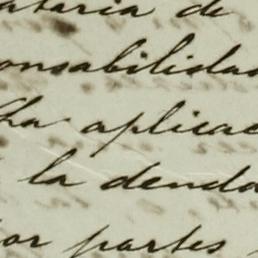 ataria de
onsabilidad
cha aplicac
la denda
por partes